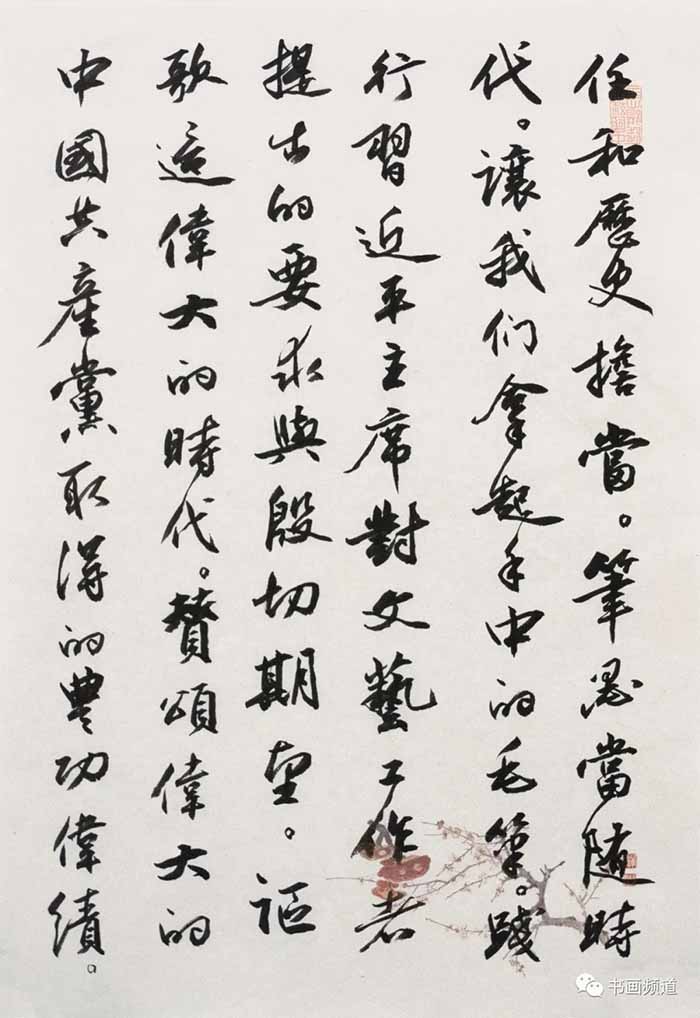 任和歷史擔當。筆墨當随時
代。讓我们拿起手中的毛筆。踐
行習近平主席對文藝工作者
提出的要求與殷切期望。謳
歌這偉大的時代。贊頌偉大的
中國共產黨取得的豐功偉績。
书画频道